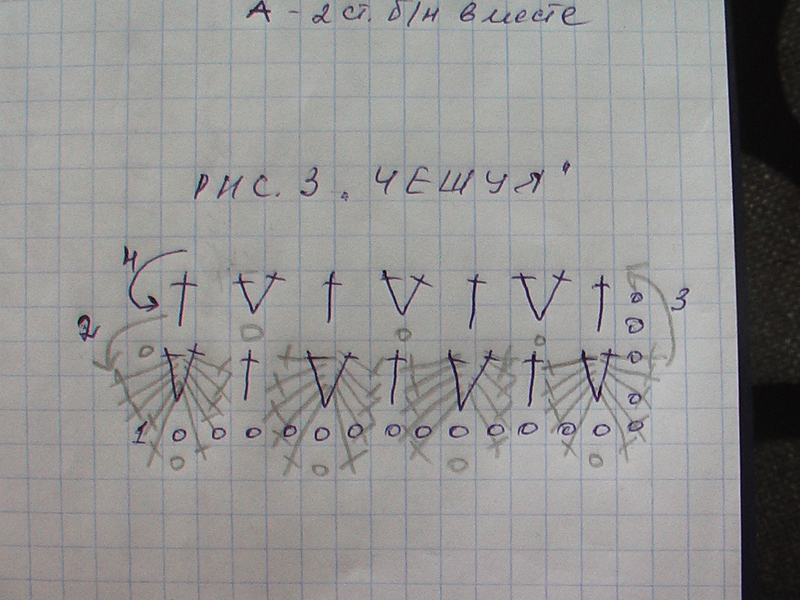 А - 2 ст. б/н вместе
РИС. 3 „ЧЕШУЯ"
4
2
3
1